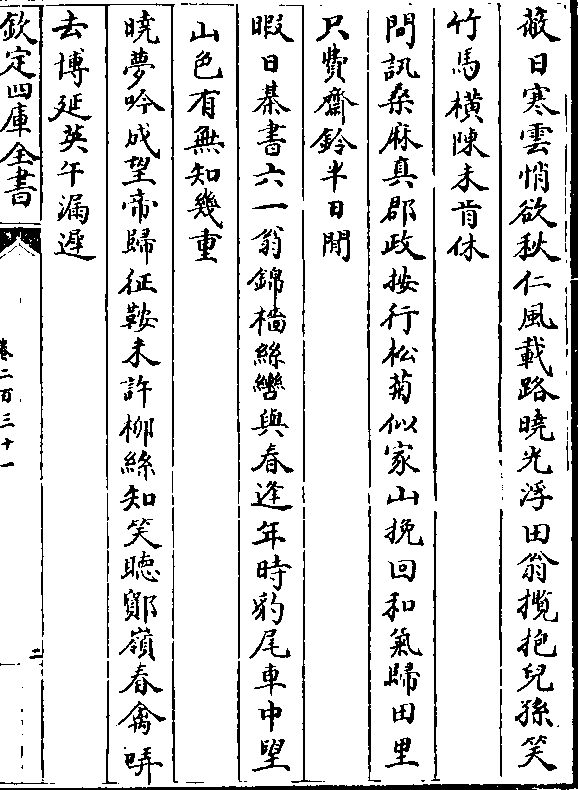 蔽日寒雲悄欲秋仁風載路曉光浮田翁攬抱兒孫笑
竹馬橫陳未肯休
問訊桑麻真郡政按行松菊似家山挽回和氣歸田里
只費齋鈴半日閒
暇日棊書六一翁錦檣絲轡與春逢年時豹尾車中望
山色有無知幾重
曉夢吟成望帝歸征鞍未許柳絲知笑聴鄮嶺春禽哢
去博延英午漏遲
欽定四庫全書
卷二百三十一
二